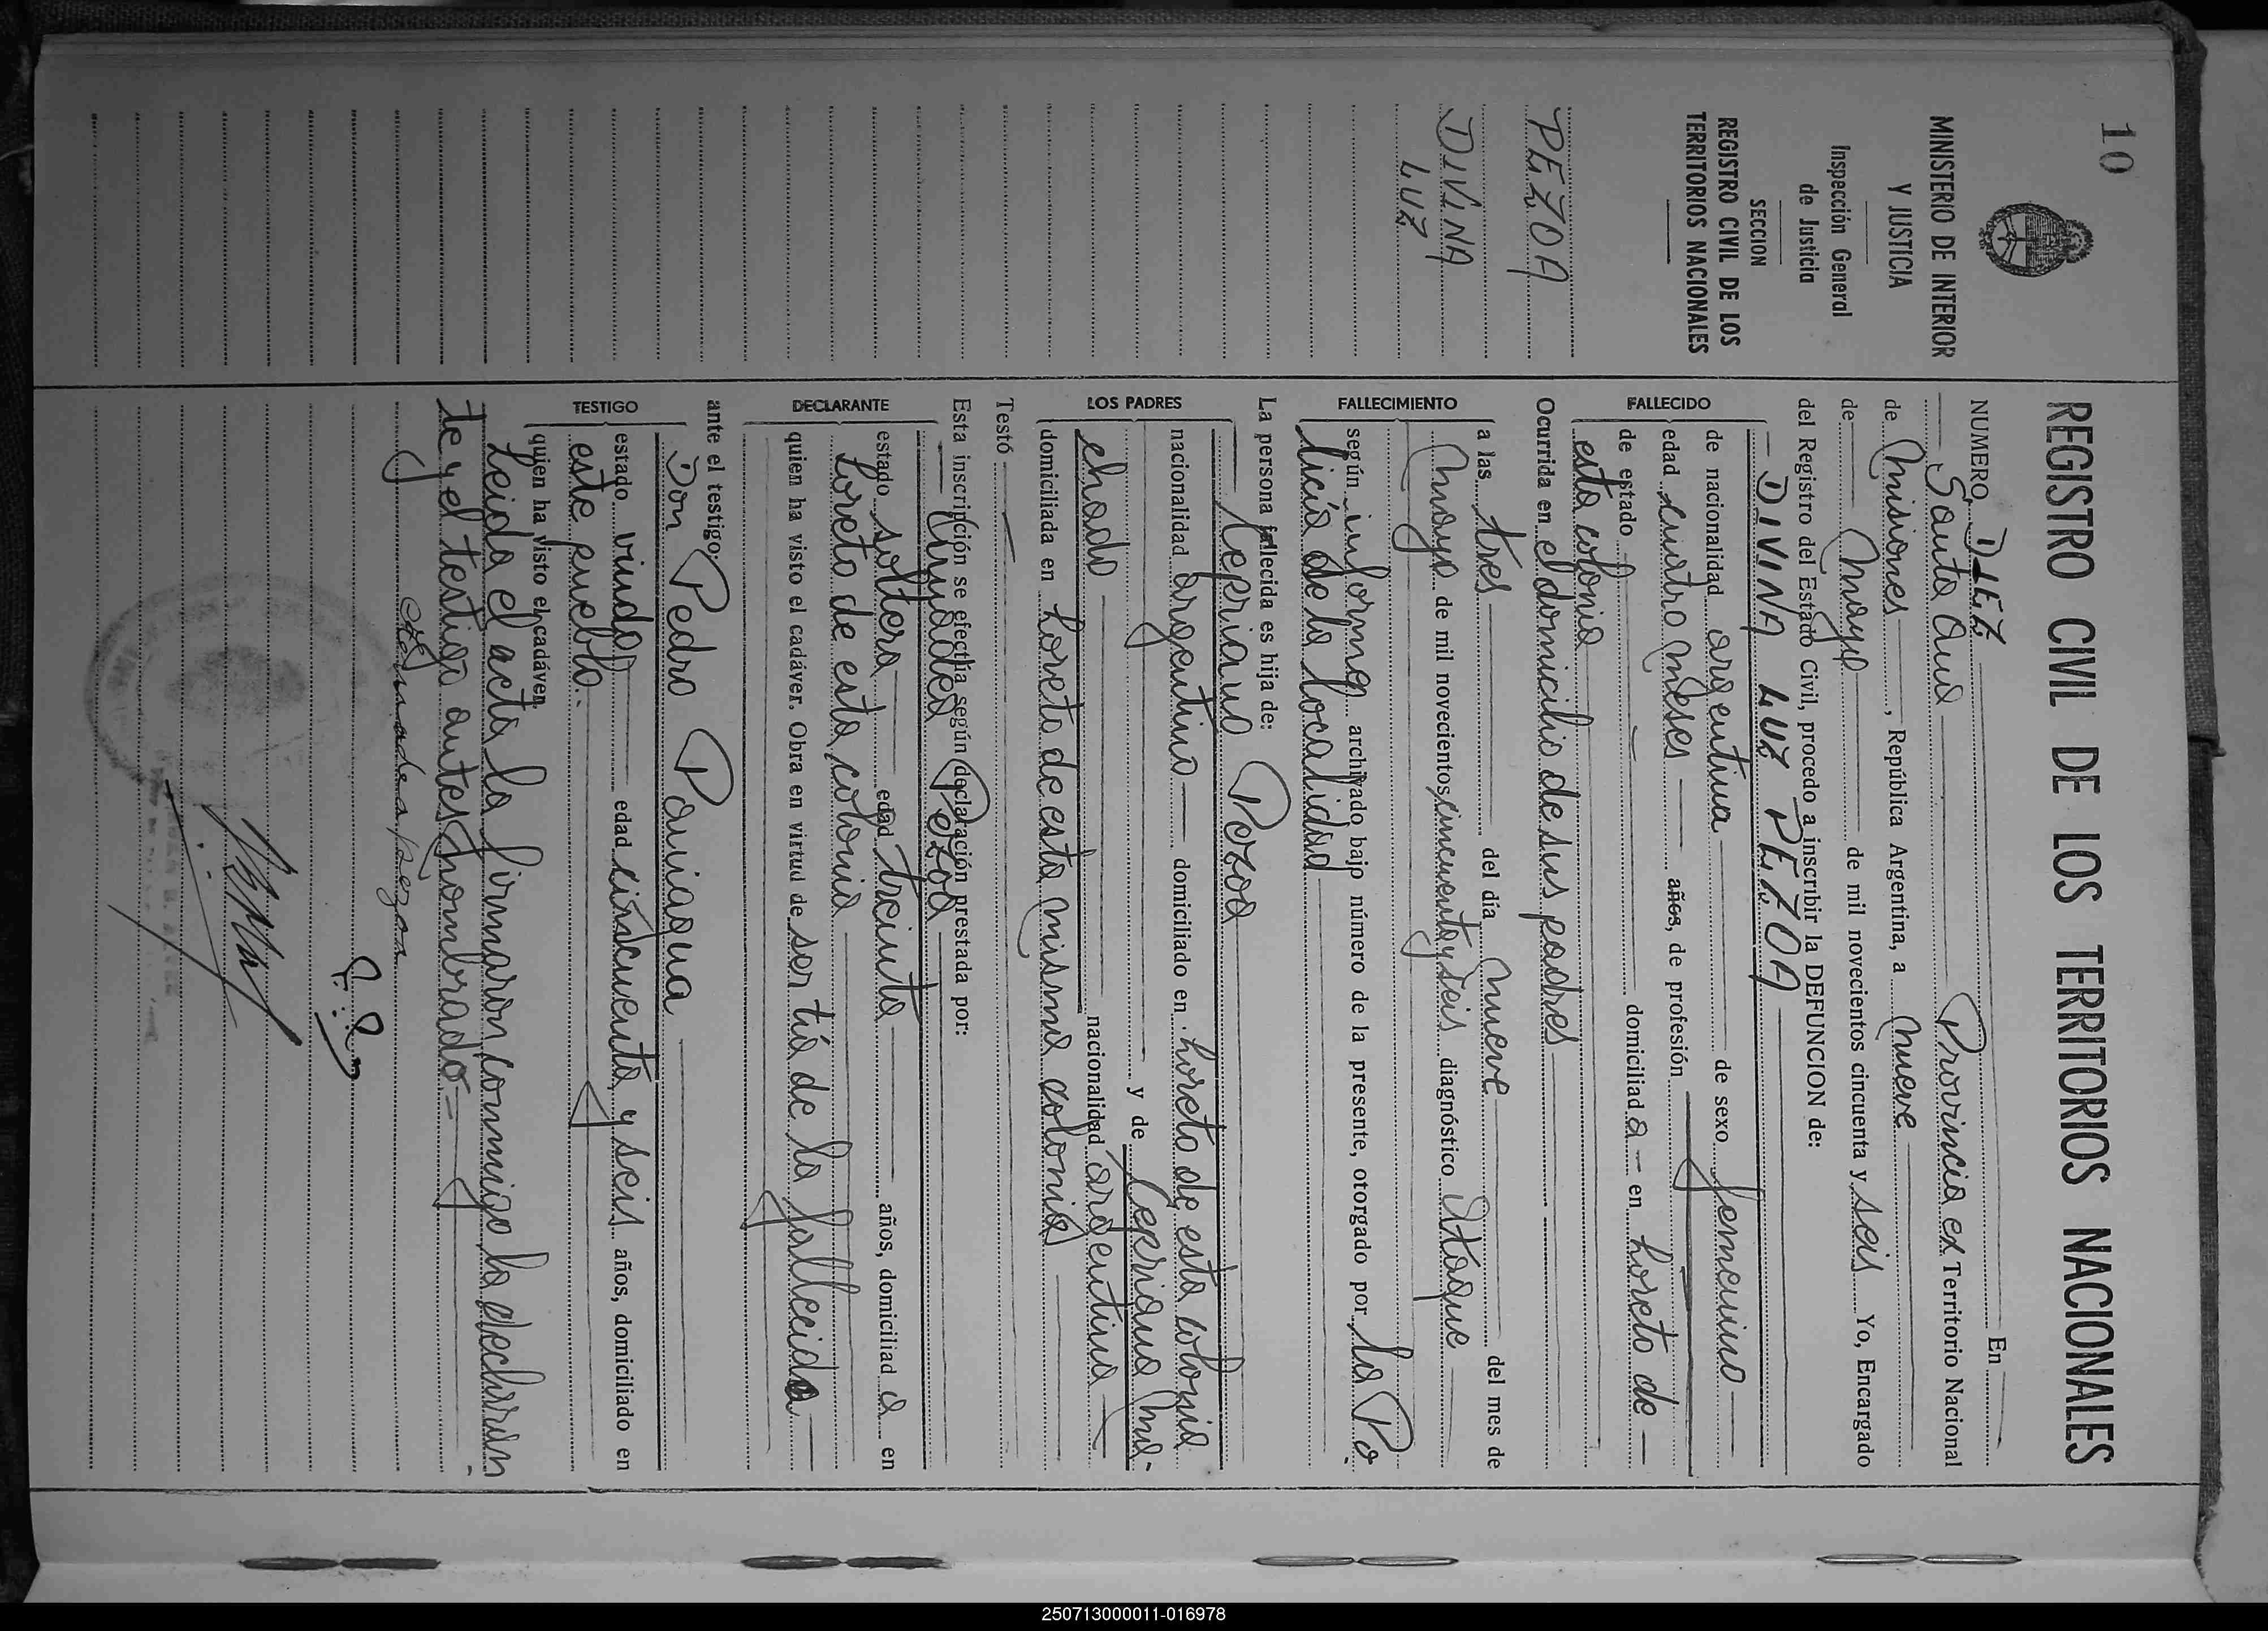 10
MINISTERIO DE INTERIOR
Y JUSTICIA
Inspección General
de Justicia
SECCION
REGISTRO CIVIL DE LOS
TERRITORIOS NACIONALES
PEZOA
DIVINA
LUZ
REGISTRO CIVIL DE LOS TERRITORIOS NACIONALES
NUMERO DIEZ En
Santa Ana Provincia ex Territorio Nacional
de Misiones, República Argentina, a nueve
de Mayo de mil novecientos cincuenta y seis Yo, Encargado
del Registro del Estado Civil, procedo a inscribir la DEFUNCION de:
DIVINA LUZ PEZOA
FALLECIDO
de nacionalidad argentina de sexo femenino
edad cuatro meses años, de profesión
de estado domiciliad a en Loreto de
esta colonia
Ocurrida en el domicilio de sus padres
FALLECIMIENTO
a las tres del día nueve del mes de
Mayo de mil novecientos cincuenta y seis diagnóstico Ataque
según informa archivado bajo número de la presente, otorgado por la Po
licía de la localidad
La persona fallecida es hija de:
LOS PADRES
Pezoa
nacionalidad argentino domiciliado en Loreto de esta colonia
y de Cepriana Ma-
chado nacionalidad argentina
domiciliada en Loreto de esta misma colonia
Testó
Esta inscripción se efectúa según declaración prestada por:
DECLARANTE
Pezoa
estado soltera edad treinta años, domiciliad a en
Loreto de esta colonia
quien ha visto el cadáver. Obra en virtud de ser tía de la fallecida
ante el testigo:
TESTIGO
Don Pedro Paniagua
estado viudo edad cincuenta y seis años, domiciliado en
este pueblo.
quien ha visto el cadáver.
Leida el acta la firmaron conmigo, la declaran
te y el testigo antes nombrado
250713000011-016978